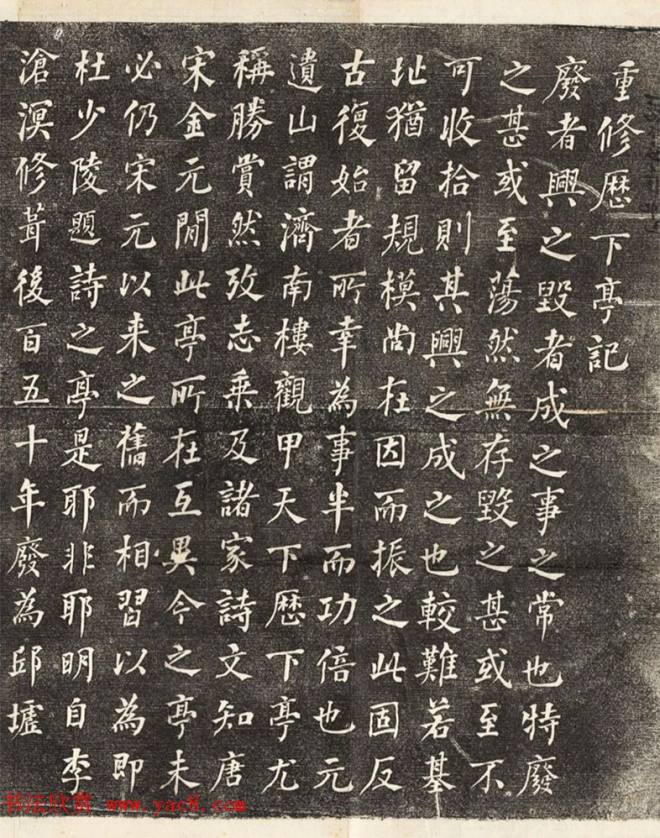 重修歷下亭記
廢者興之毀者成之事之常也特廢
之甚或至蕩然無存毀之甚或至不
可收拾則其興之成之也較難若基
址猶留規模尚在因而振之此固反
古復始者所幸為事半而功倍也元
遺山謂濟南樓觀甲天下歷下亭尤
稱勝賞然攷志乘及諸家詩文知唐
宋金元間此亭所在互異今之亭未
必仍宋元以来之舊而相習以為即
杜少陵題詩之亭是耶非耶明自李
滄溟修葺後百五十年廢為邱墟
书法欣赏 www.yac8.com